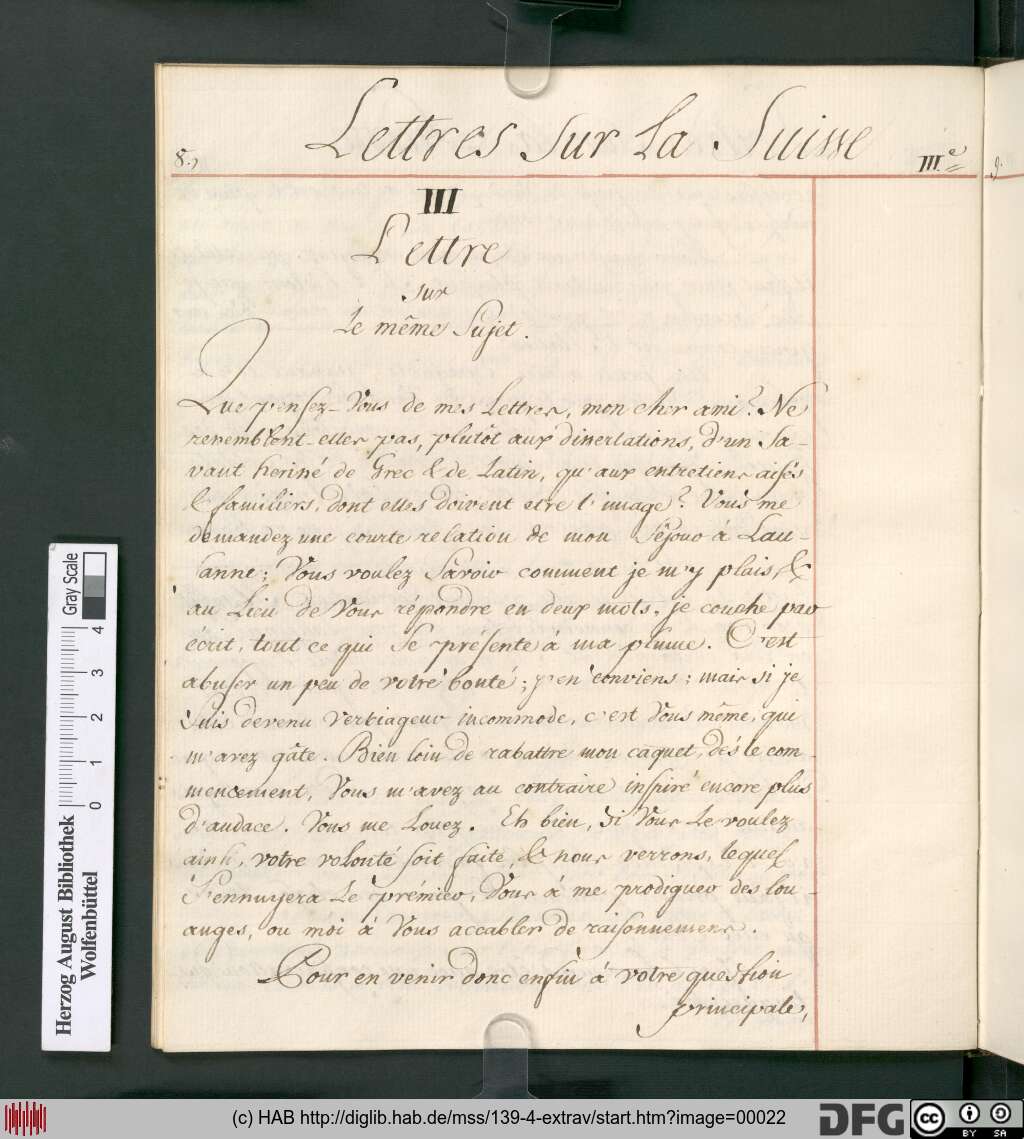 Lettres sur la Suisse
8., III.e 9.
III
Lettre
sur
le même Sujet.
Que pensez-Vous de mes Lettres, mon cher ami? Ne
ressemblent-elles pas, plutôt aux dissertations, d'un Sa-
vant herissé de Grec & de Latin, qu'aux entretiens aisés
& familiers, dont elles doivent etre l'image? Vous me
demandez une courte relation de mon Séjour à Lau-
sanne; Vous voulez Savoir comment je m'y plais, &
au Lieu de Vous répondre en deux mots, je couche par
écrit, tout ce qui Se présente à ma plume. C'est
abuser un peu de votre bonté; j'en conviens; mais si je
Suis devenu Verbiageur incommode, c'est Vous même, qui
m'avez gâte. Bien loin de rabattre mon caquet, dés le com-
mencement, Vous m'avez au contraire inspiré encore plus
d'audace. Vous me Louez. Eh bien, si Vous Le voulez
ainsi, votre volonté soit faite, & nous verrons, lequel
S'ennuyera Le prémier, Vous à me prodiguer des lou-
anges, ou moi à Vous accabler de raisonnemens.
Pour en venir donc enfin à votre question
principale,
Herzog August Bibliothek
Wolfenbüttel
0 1 2 3 4
Gray Scale
(c) HAB http://diglib.hab.de/mss/139-4-extrav/start.htm?image=00022
DFG
cc BY SA